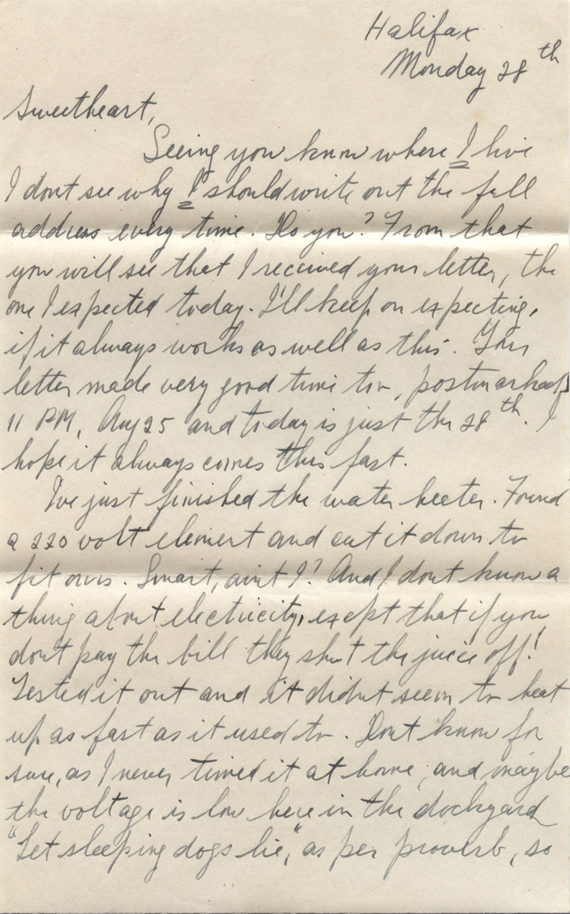 Halifax
Monday 28th
Sweetheart,
Seeing you know where I live
I dont see why I should write out the full
address every time. Do you? From that
you will see that I received your letter, the
one I expected today. I'll keep on expecting,
if it always works as well as this. This
letter made very good time too, postmarked
11 PM, Aug 25 and today is just the 28th. I
hope it always comes this fast.
I've just finished the water heeter. Found
a 220 volt element and cut it down to
fit ours. Smart, aint I? And I dont know a
thing about electricity, except that if you
dont pay the bill they shut the juice off!
Tested it out and it didnt seem to heat
up as fast as it used to. Dont know for
sure, as I never timed it at home, and maybe
the voltage is low here in the dockyard
"Let sleeping dogs lie," as per proverb, so